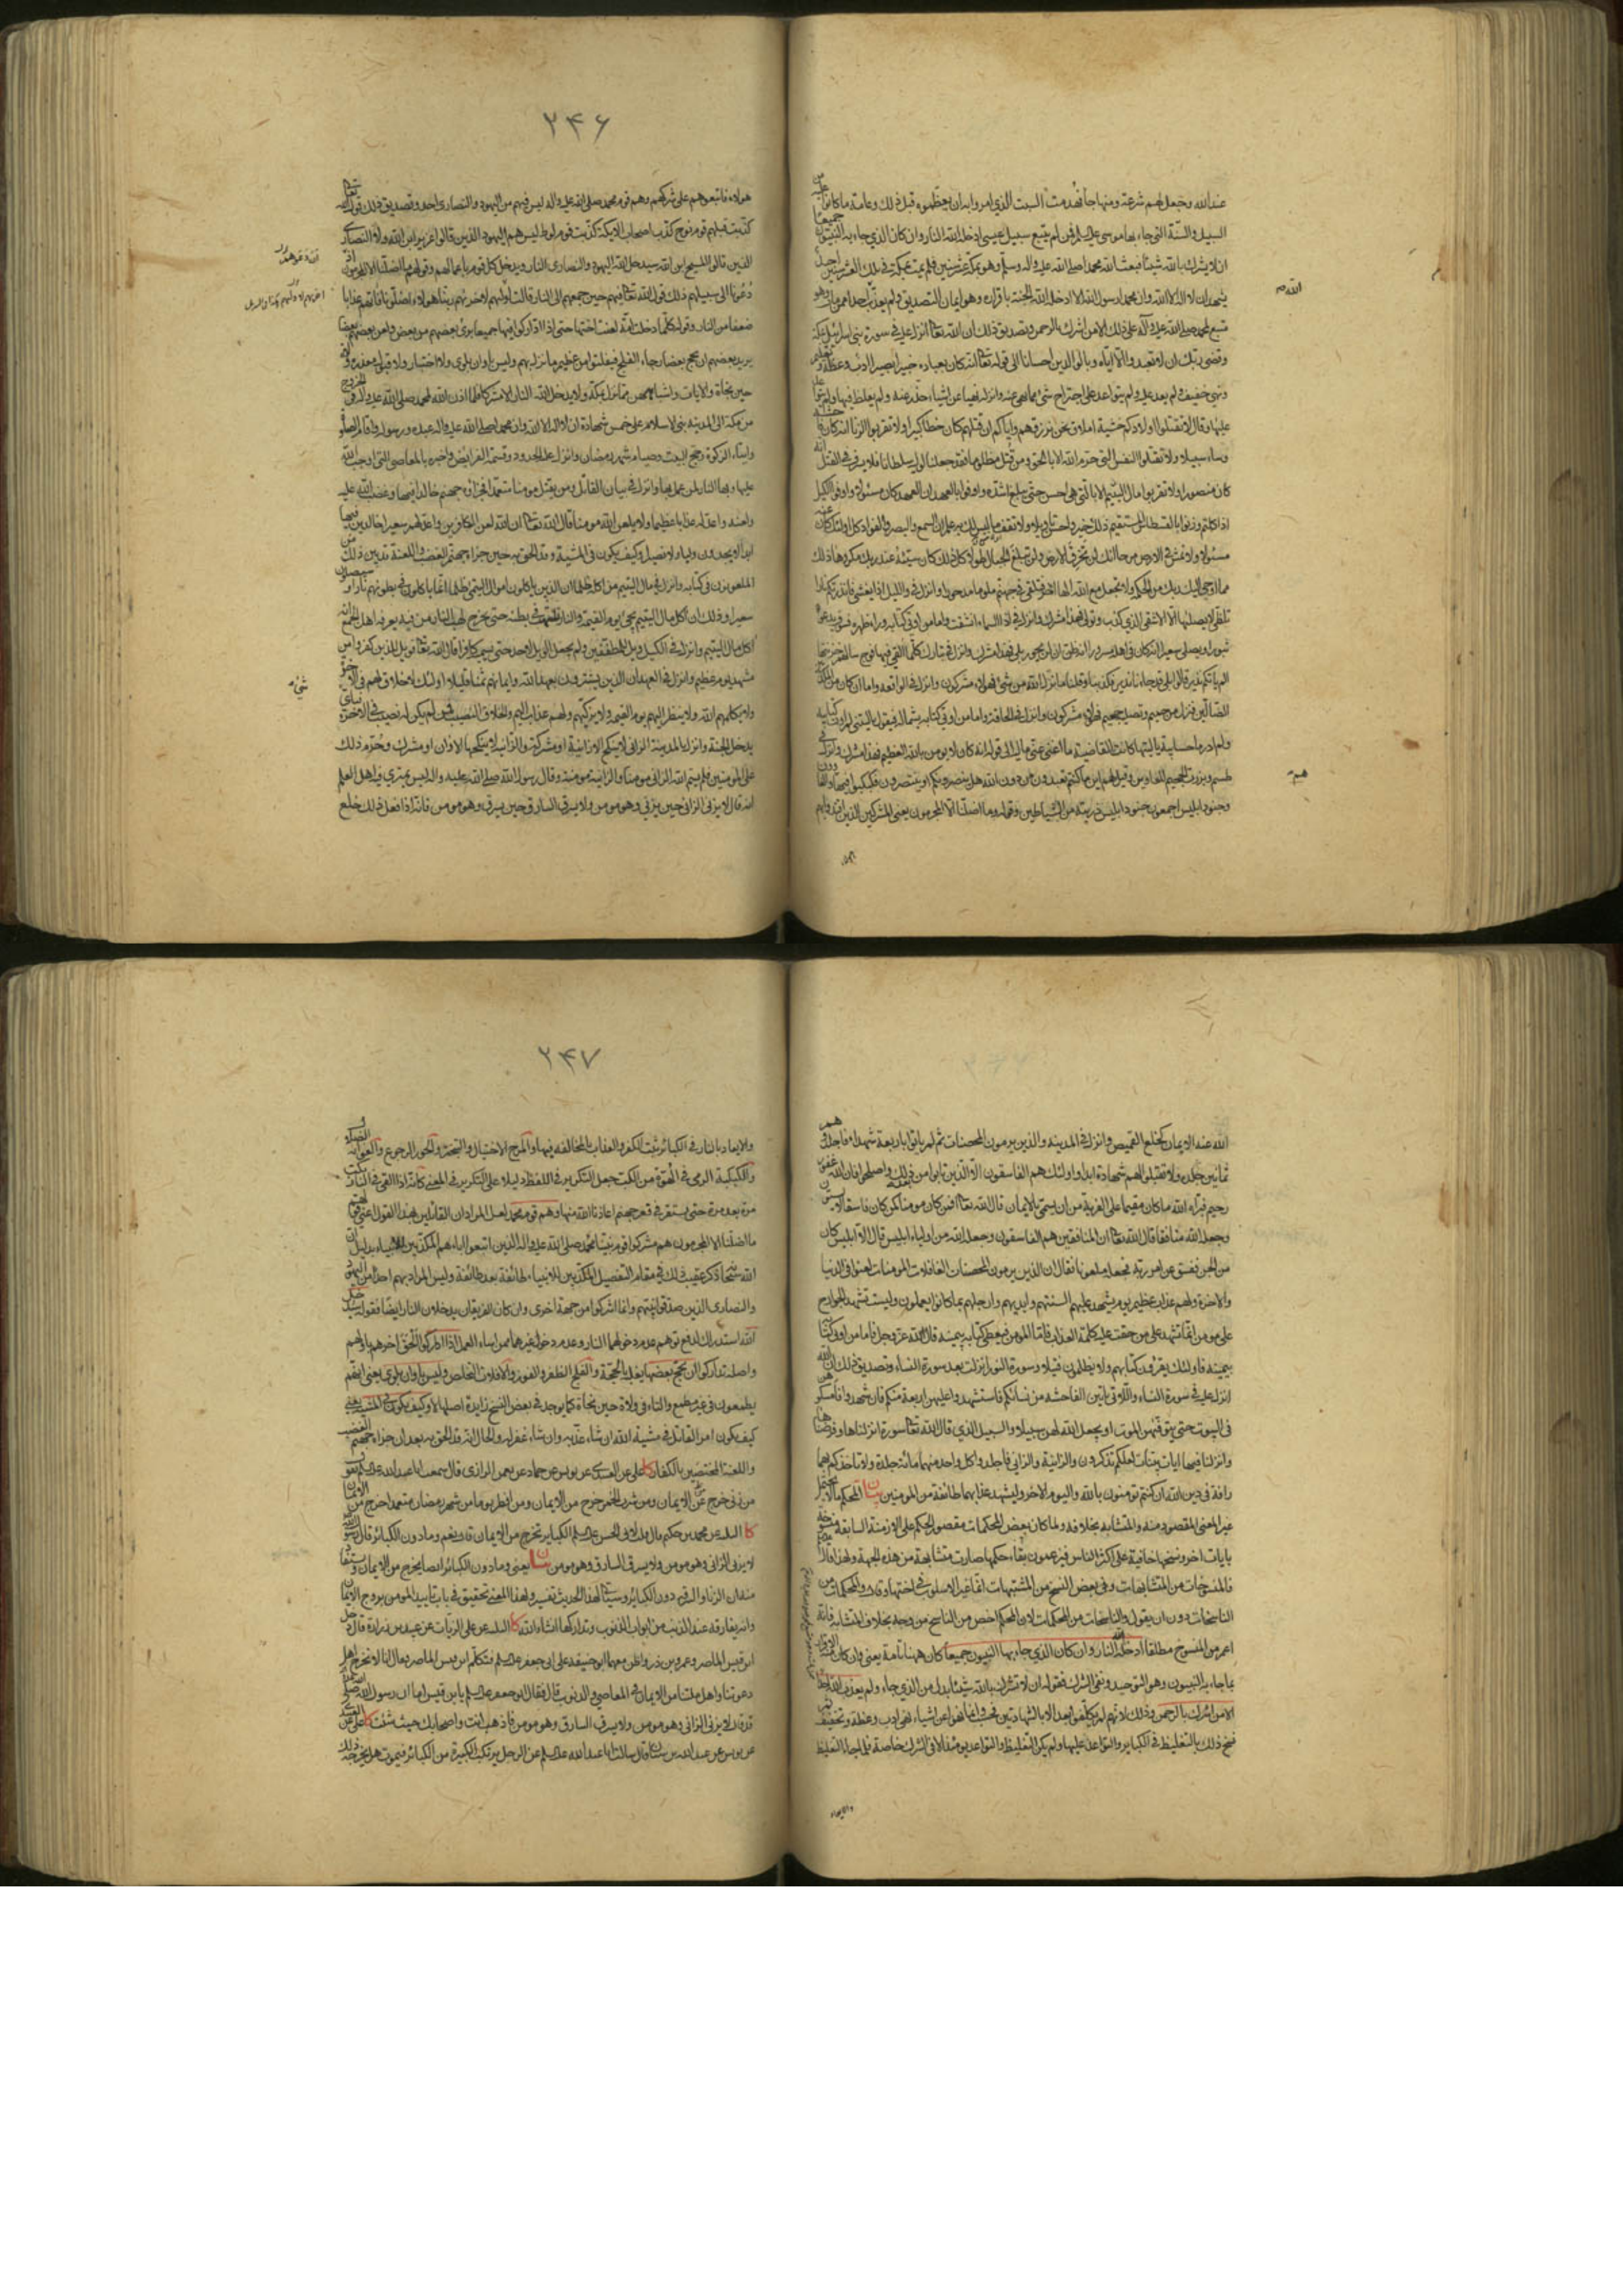 عند الله وجعل لهم شرعة ومنهاجا فهدمت السبت الذي امروا به ان يعظموه قبل ذلك وعامة ما كانوا عليه من
السبيل والسنة التي جاء بها موسى عليه السلم فمن لم يتبع سبيل عيسى ادخله الله النار وان كان الذي جاء به النبيون جميعا
ان لا يشرك بالله شيئا فبعث الله محمدا صلى الله عليه وآله وسلم وهو بمكة عشر سنين فلم يمت بمكة في تلك العشر سنين احد
يشهد ان لا اله الا الله وان محمدا رسول الله الا ادخله الله الجنة باقراره وهو ايمان التصديق ولم يعذب الله احدا ممن مات وهو
متبع لمحمد صلى الله عليه وآله على ذلك الا من اشرك بالرحمن وتصديق ذلك ان الله تعالى انزل عليه في سورة بني اسرائيل بمكة
وقضى ربك ان لا تعبدوا الا اياه وبالوالدين احسانا الى قوله تعالى انه كان بعباده خبيرا بصيرا ادب وعظة وتعليم
ونهي خفيف ولم يعد عليه ولم يتواعد على اجتراح شيء مما نهى عنه وانزل نهيا عن اشياء حذر عنه ولم يغلظ فيها ولم يتواعد
عليها وقال لا تقتلوا اولادكم خشية املاق نحن نرزقهم واياكم ان قتلهم كان خطا كبيرا ولا تقربوا الزنا انه كان فاحشة
وساء سبيلا ولا تقتلوا النفس التي حرم الله الا بالحق ومن قتل مظلوما فقد جعلنا لوليه سلطانا فلا يسرف في القتل انه
كان منصورا ولا تقربوا مال اليتيم الا بالتي هي احسن حتى يبلغ اشده واوفوا بالعهد ان العهد كان مسئولا واوفوا الكيل
اذا كلتم وزنوا بالقسطاس المستقيم ذلك خير واحسن تاويلا ولا تقف ما ليس لك به علم ان السمع والبصر والفواد كل اولئك كان عنه
مسئولا ولا تمش في الارض مرحا انك لن تخرق الارض ولن تبلغ الجبال طولا كل ذلك كان سيئه عند ربك مكروها ذلك
مما اوحى اليك ربك من الحكمة ولا تجعل مع الله الها اخر فتلقى في جهنم ملوما مدحورا وانزل في والليل اذا يغشى فانذرتكم نارا
تلظى لا يصليها الا الاشقى الذي كذب وتولى فهذا مشرك وانزل في اذا السماء انشقت واما من اوتي كتابه وراء ظهره فسوف يدعوا
ثبورا ويصلى سعيرا انه كان في اهله مسرورا انه ظن ان لن يحور بلى فهذا مشرك وانزل في تبارك كلما القي فيها فوج سالهم خزنتها
الم ياتكم نذير قالوا بلى قد جاءنا نذير فكذبنا وقلنا ما نزل الله من شيء فهؤلاء مشركون وانزل في الواقعة واما ان كان من المكذبين
الضالين فنزل من حميم وتصلية جحيم فهؤلاء مشركون وانزل في الحاقة واما من اوتي كتابه بشماله فيقول يا ليتني لم اوت كتابيه
ولم ادر ما حسابيه يا ليتها كانت القاضية ما اغنى عني ماليه الى قوله انه كان لا يومن بالله العظيم فهذا مشرك وانزل في
طسم وبرزت الجحيم للغاوين وقيل لهم اين ما كنتم تعبدون من دون الله هل ينصرونكم او ينتصرون فكبكبوا فيها هم والغاوون
وجنود ابليس اجمعون جنود ابليس ذريته من الشياطين وقوله وما اضلنا الا المجرمون يعني المشركين الذين اقتدوا بهم
الله
هم
۲۴۶
هؤلاء فاتبعوهم على شركهم وهم قوم محمد صلى الله عليه وآله ليس فيهم من اليهود والنصارى احد وتصديق ذلك قول الله تعالى
كذبت قبلهم قوم نوح كذب اصحاب الايكة كذبت قوم لوط ليس هم اليهود الذين قالوا عزير ابن الله ولا النصارى
الذين قالوا المسيح ابن الله سيدخل الله اليهود والنصارى النار ويدخل كل قوم باعمالهم وقولهم وما اضلنا الا المجرمون اذ
دعونا الى سبيلهم ذلك قول الله تعالى فيهم حين جمعهم الى النار قالت اوليهم لاخريهم ربنا هؤلاء اضلونا فاتهم عذابا
ضعفا من النار وقوله كلما دخلت امة لعنت اختها حتى اذا اداركوا فيها جميعا برئ بعضهم من بعض ولعن بعضهم بعضا
يريد بعضهم ان يحج بعضا رجاء الفلج فيفلتوا من عظيم ما نزل بهم وليس باوان بلوى ولا اختبار ولا قبول معذرة ولات
حين نجاة والايات واشباههن مما نزل بمكة ولا يدخل الله النار الا مشركا فلما اذن الله لمحمد صلى الله عليه وآله في الخروج
من مكة الى المدينة بني الاسلام على خمس شهادة ان لا اله الا الله وان محمدا صلى الله عليه وآله عبده ورسوله واقام الصلوة
وايتاء الزكوة وحج البيت وصيام شهر رمضان وانزل عليه الحدود وقسمة الفرايض واخبره بالمعاصي التي اوجب الله
عليها وبها النار لمن عمل بها وانزل في بيان القاتل ومن يقتل مومنا متعمدا فجزاؤه جهنم خالدا فيها وغضب الله عليه
ولعنه واعد له عذابا عظيما ولا يلعن الله مومنا قال الله تعالى ان الله لعن الكافرين واعد لهم سعيرا خالدين فيها
ابدا لا يجدون وليا ولا نصيرا وكيف يكون في المشية وقد الحق به حين جزاه جهنم الغضب واللعنة قد بين ذلك من
الملعونون في كتابه وانزل في مال اليتيم من اكله ظلما ان الذين ياكلون اموال اليتمى ظلما انما ياكلون في بطونهم نارا وسيصلون
سعيرا وذلك ان اكل مال اليتيم يجيء يوم القيمة والنار تلتهب في بطنه حتى يخرج لهب النار من فيه يعرفه اهل الجمع انه
اكل مال اليتيم وانزل في الكيل ويل للمطففين ولم يجعل الويل لاحد حتى يسميه كافرا قال الله تعالى فويل للذين كفروا من
مشهد يوم عظيم وانزل في العهد ان الذين يشترون بعهد الله وايمانهم ثمنا قليلا اولئك لا خلاق لهم في الاخرة
ولا يكلمهم الله ولا ينظر اليهم يوم القيمة ولا يزكيهم ولهم عذاب اليم والخلاق النصيب فمن لم يكن له نصيب في الاخرة فباي
يدخل الجنة وانزل بالمدينة الزاني لا ينكح الا زانية او مشركة والزانية لا ينكحها الا زان او مشرك وحرم ذلك
على المومنين فلم يسم الله الزاني مومنا ولا الزانية مومنة وقال رسول الله صلى الله عليه وآله ليس يمتري فيه اهل العلم
انه قال لا يزني الزاني حين يزني وهو مومن ولا يسرق السارق حين يسرق وهو مومن فانه اذا فعل ذلك خلع
شيء
الله عنه الايمان كخلع القميص وانزل في المدينة والذين يرمون المحصنات ثم لم ياتوا باربعة شهداء فاجلدوهم
ثمانين جلدة ولا تقبلوا لهم شهادة ابدا واولئك هم الفاسقون الا الذين تابوا من بعد ذلك واصلحوا فان الله غفور
رحيم فبراه الله ما كان مقيما على الفرية من ان يسمى بالايمان قال الله تعالى افمن كان مومنا كمن كان فاسقا لا يستون
وجعله الله منافقا قال الله تعالى ان المنافقين هم الفاسقون وجعله الله من اولياء ابليس قال الا ابليس كان
من الجن ففسق عن امر ربه وجعله ملعونا فقال ان الذين يرمون المحصنات الغافلات المومنات لعنوا في الدنيا
والاخرة ولهم عذاب عظيم يوم تشهد عليهم السنتهم وايديهم وارجلهم بما كانوا يعملون وليست تشهد الجوارح
على مومن انما تشهد على من حقت عليه كلمة العذاب فاما المومن فيعطى كتابه بيمينه قال الله عز وجل فاما من اوتي كتابه
بيمينه فاولئك يقرؤن كتابهم ولا يظلمون فتيلا وسورة النور انزلت بعد سورة النساء وتصديق ذلك ان الله
انزل عليه في سورة النساء واللاتي ياتين الفاحشة من نسائكم فاستشهدوا عليهن اربعة منكم فان شهدوا فامسكوهن
في البيوت حتى يتوفهن الموت او يجعل الله لهن سبيلا والسبيل الذي قال الله تعالى سورة انزلناها وفرضناها
وانزلنا فيها ايات بينات لعلكم تذكرون والزانية والزاني فاجلدوا كل واحد منهما مائة جلدة ولا تاخذكم بهما
رافة في دين الله ان كنتم تومنون بالله واليوم الاخر وليشهد عذابهما طائفة من المومنين بيان المحكم ما لا يحتمل
غير المعنى المقصود منه والمتشابه بخلافه ولما كان بعض المحكمات مقصور الحكم على الازمنة السابقة منسوخة
بايات اخر ونسخها خافية على اكثر الناس فيزعمون بقاء حكمها صارت متشابهة من هذه الجهة ولهذا قال
فالمنسوخات من المتشابهات وفي بعض النسخ من المشتبهات انما غير الاسلوب في اختها وقال والمحكمات من
الناسخات دون ان يقول والناسخات من المحكمات لان المحكم اخص من الناسخ من وجه بخلاف المتشابه فانه
اعم من المنسوخ مطلقا ادخله الله النار وان كان الذي جاء بها النبيون جميعا كان ههنا تامة يعني وان كان منه الاقرار
بما جاء به النبيون وهو التوحيد ونفي الشرك فقوله ان لا تشرك بالله شيئا بدل من الذي جاء ولم يعذب الله احدا
الا من اشرك بالرحمن وذلك لانهم لم يكلفوا بعد الا بالشهادتين فحسب وانما نهوا عن اشياء نهي ادب وعظة وتخفيف
نسخ ذلك بالتغليظ في الكباير والتواعد عليها ولم يكن التغليظ والتواعد يومئذ الا في الشرك خاصة فلما جاء التغليظ
والايعاد
۲۴۷
والايعاد بالنار في الكبائر ثبت الكفر والعذاب بالمخالفة فيها والمرح الاختيال والتبختر والحور الرجوع والغواية الضلالة
والكبكبة الرمي في الهوة من الكب جعل التكرير في اللفظ دليلا على التكرير في المعنى كانه اذا القي في النار ينكب
مرة بعد مرة حتى يستقر في قعر جهنم اعاذنا الله منها وهم قوم محمد لعل المراد ان القائلين بهذا القول اعني قولهم
ما اضلنا الا المجرمون هم مشركوا قوم نبينا محمد صلى الله عليه وآله الذين اتبعوا اباءهم المكذبين للانبياء بدليل ان
الله سبحانه ذكر عقيب ذلك في مقام التفصيل المكذبين للانبياء طائفة بعد طائفة وليس المراد بهم احدا من اليهود
والنصارى الذين صدقوا نبيهم وانما اشركوا من جهة اخرى وان كان الفريقان يدخلان النار ايضا فقوله سيدخل
الله استدراك لدفع توهم عدم دخولهما النار وعدم دخول غيرهما ممن اساء العمل اذا اداركوا لحق اخرهم باولهم
واصله تداركوا ان يحج بعضهم بعضا يغلبه بالحجة والفلج الظفر والفوز والافلات التخلص وليس باوان بلوى يعني انهم
يطمعون في غير مطمع والتاء في ولات حين نجاة كما يوجد في بعض النسخ زايدة اصلها لا وكيف يكون في المشية يعني
كيف يكون امر القاتل في مشية الله ان شاء عذبه وان شاء غفر له والحال انه قد الحق به بعد ان جزاه جهنم الغضب
واللعنة المختصين بالكفار كا علي عن العبيدي عن يونس عن حماد عن نعمن الرازي قال سمعت ابا عبد الله عليه السلم يقول
من زنى خرج من الايمان ومن شرب الخمر خرج من الايمان ومن افطر يوما من شهر رمضان متعمدا خرج من الايمان
كا الثلاثة عن محمد بن حكيم قال قلت لابي الحسن عليه السلم الكباير تخرج من الايمان قال نعم وما دون الكبائر قال رسول الله
لا يزني الزاني وهو مومن ولا يسرق السارق وهو مومن بيان يعني وما دون الكبائر ايضا يخرج من الايمان ويستفاد
منه ان الزنا والسرقة دون الكباير وسياتي لهذا الحديث تفسير ولهذا المعنى تحقيق في باب تاييد المومن بروح الايمان
وانه يفارقه عند الذنب من ابواب الذنوب وتداركها انشاء الله كا الثلاثة عن علي الزيات عن عبيد بن زرارة قال دخل
ابن قيس الماصر وعمرو بن ذر واظن معهما ابو حنيفة على ابي جعفر عليه السلم فتكلم ابن قيس الماصر فقال انا لا نخرج اهل
دعوتنا واهل ملتنا من الايمان في المعاصي والذنوب قال فقال له ابو جعفر عليه السلم يا بن قيس اما رسول الله صلى الله عليه وآله
فقد قال لا يزني الزاني وهو مومن ولا يسرق السارق وهو مومن فاذهب انت واصحابك حيث شئت كا علي عن العبيدي
عن يونس عن عبد الله بن سنان قال سالت ابا عبد الله عليه السلم عن الرجل يرتكب الكبيرة من الكبائر فيموت هل يخرجه ذلك